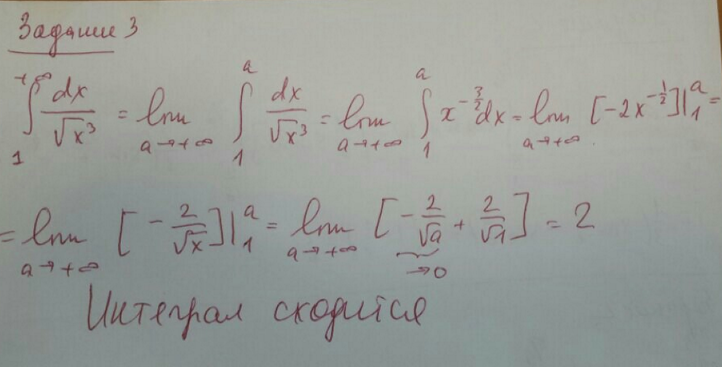 Задание 3
∫₁^{+∞} dx/√x³ = lim_{a→+∞} ∫₁^a dx/√x³ = lim_{a→+∞} ∫₁^a x^{-3/2}dx = lim_{a→+∞} [-2x^{-1/2}]|₁^a =
= lim_{a→+∞} [-2/√x]|₁^a = lim_{a→+∞} [-2/√a + 2/√1] = 2
→0
Интеграл сходится